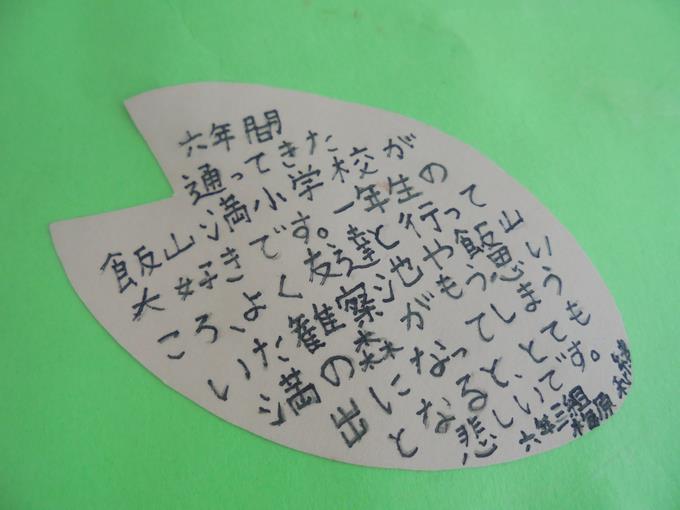 六年間
通ってきた
飯山満小学校が
大好きです。一年生の
ころ、よく友達と行って
いた観察池や飯山
満の森がもう思い
出になってしまう
となると、とても
悲しいです。
六年三組
原